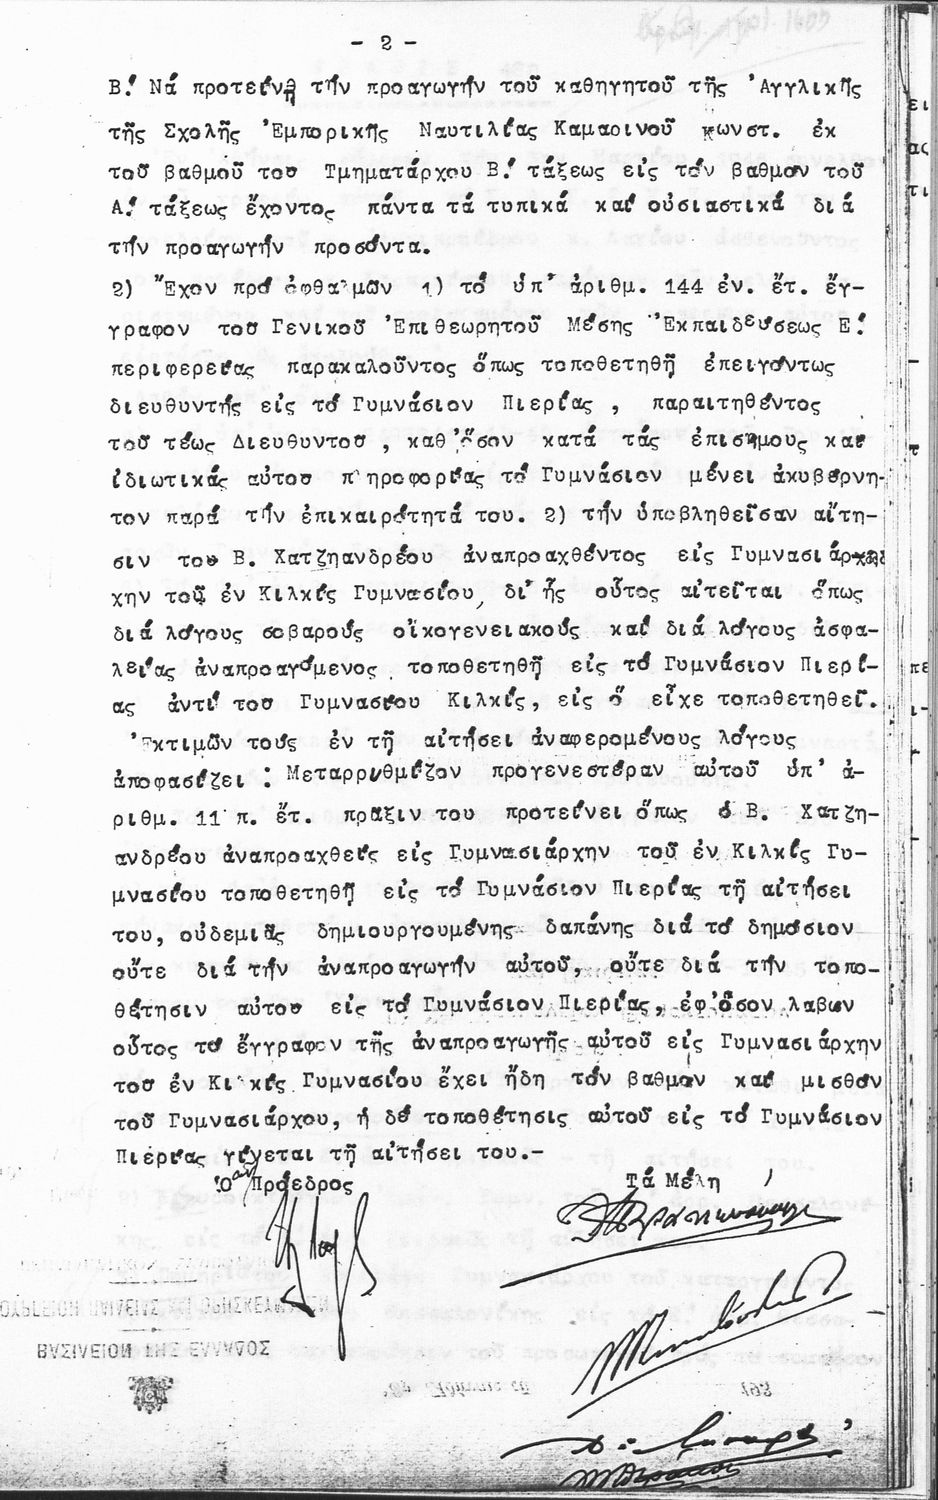 - 2 -
Β! Νά προτείνῃ τήν προαγωγήν τοῦ καθηγητοῦ τῆς Ἀγγλικῆς
τῆς Σχολῆς Ἐμπορικῆς Ναυτιλίας Καμαρινοῦ Κωνστ. ἐκ
τοῦ βαθμοῦ του Τμηματάρχου Β! τάξεως εἰς τόν βαθμόν τοῦ
Α! τάξεως ἔχοντος πάντα τά τυπικά καί οὐσιαστικά διά
τήν προαγωγήν προσόντα.
2) Ἔχον πρό ὀφθαλμῶν 1) τό ὑπ' ἀριθμ. 144 ἐν. ἔτ. ἔγ-
γραφον του Γενικοῦ Ἐπιθεωρητοῦ Μέσης Ἐκπαιδεύσεως Ε!
περιφερείας παρακαλοῦντος ὅπως τοποθετηθῇ ἐπειγόντως
διευθυντής εἰς τό Γυμνάσιον Πιερίας , παραιτηθέντος
τοῦ τέως Διευθυντοῦ , καθ' ὅσον κατά τάς ἐπισήμους καί
ἰδιωτικάς αὐτοῦ πληροφορίας τό Γυμνάσιον μένει ἀκυβέρνη-
τον παρά τήν ἐπικαιρότητά του. 2) τήν ὑποβληθεῖσαν αἴτη-
σιν του Β. Χατζηανδρέου ἀναπροαχθέντος εἰς Γυμνασιάρ
χην τοῦ ἐν Κιλκίς Γυμνασίου, δι' ἧς οὗτος αἰτεῖται ὅπως
διά λόγους σοβαρούς οἰκογενειακούς καί διά λόγους ἀσφα-
λείας ἀναπροαγόμενος τοποθετηθῇ εἰς τό Γυμνάσιον Πιερί-
ας ἀντί του Γυμνασίου Κιλκίς, εἰς ὅ εἶχε τοποθετηθεῖ.
Ἐκτιμῶν τούς ἐν τῇ αἰτήσει ἀναφερομένους λόγους
ἀποφασίζει : Μεταρρυθμίζον προγενεστέραν αὐτοῦ ὑπ' ἀ-
ριθμ. 11 π. ἔτ. πρᾶξιν του προτείνει ὅπως ὁ Β. Χατζη-
ανδρέου ἀναπροαχθείς εἰς Γυμνασιάρχην τοῦ ἐν Κιλκίς Γυ-
μνασίου τοποθετηθῇ εἰς τό Γυμνάσιον Πιερίας τῇ αἰτήσει
του, οὐδεμιᾶς δημιουργουμένης δαπάνης διά τό δημόσιον
οὔτε διά τήν ἀναπροαγωγήν αὐτοῦ, οὔτε διά τήν τοπο-
θέτησιν αὐτου εἰς τό Γυμνάσιον Πιερίας, ἐφ' ὅσον λαβών
οὗτος τό ἔγγραφον τῆς ἀναπροαγωγῆς αὐτοῦ εἰς Γυμνασιάρχην
του ἐν Κιλκίς Γυμνασίου ἔχει ἤδη τόν βαθμόν καί μισθόν
τοῦ Γυμνασιάρχου, ἡ δέ τοποθέτησις αὐτοῦ εἰς τό Γυμνάσιον
Πιερίας γίνεται τῇ αἰτήσει του.-
Ὁ Πρόεδρος Τά Μέλη
ΒΑΣΙΛΕΙΟΝ ΤΗΣ ΕΛΛΑΔΟΣ